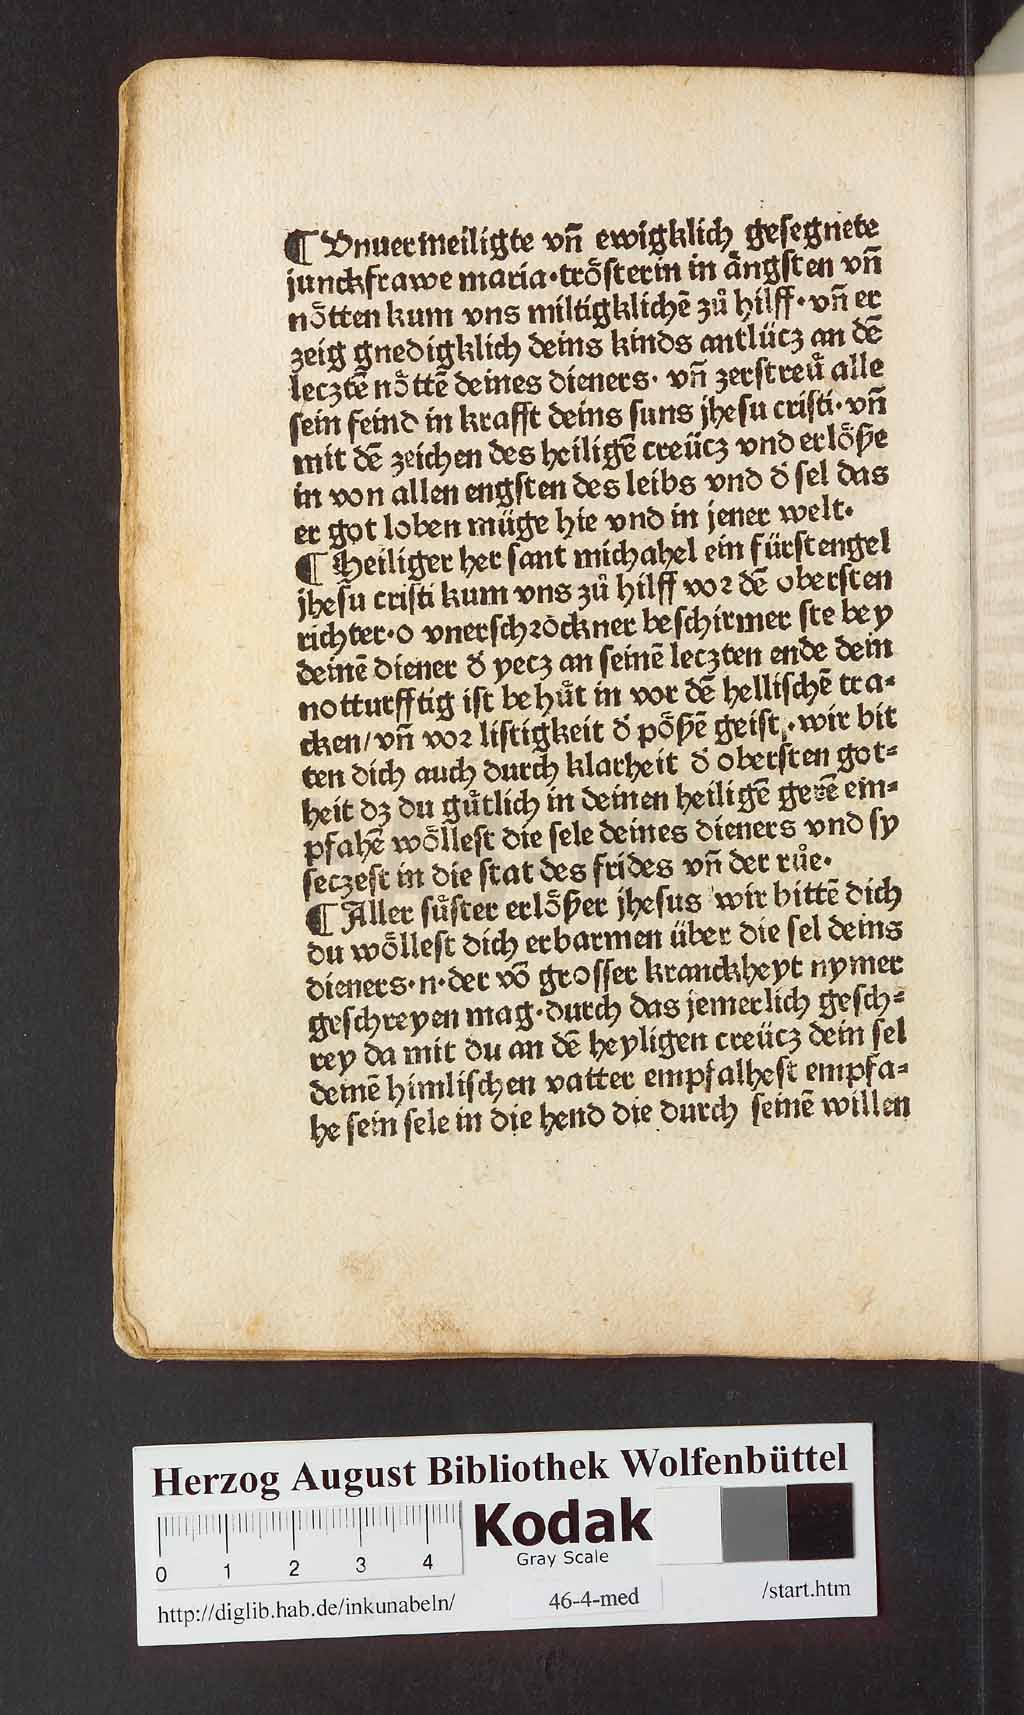 ¶ Vnuermeiligte vn̄ ewigklich gesegnete
junckfrawe maria·trösterin in ängsten vn̄
nötten kum vns miltigklichē zů hilff·vn̄ er
zeig gnedigklich deins kinds antlücz an dē
lecztē nöttē deines dieners· vn̄ zerstreü alle
sein feind in krafft deins suns jhesu cristi·vn̄
mit dē zeichen des heiligē creücz vnd erlöße
in von allen engsten des leibs vnd d̄ sel das
er got loben müge hie vnd in jener welt·
¶ Heiliger her sant michahel ein fürstengel
jhesu cristi kum vns zů hilff vor dē obersten
richter·o vnerschröckner beschirmer ste bey
deinē diener d̄ yecz an seinē leczten ende dein
notturfftig ist behůt in vor dē hellischē tra⸗
cken/vn̄ vor listigkeit d̄ pößē geist·wir bit
ten dich auch durch klarheit d̄ obersten got⸗
heit dz du gůtlich in deinen heiligē gerē ein⸗
pfahē wöllest die sele deines dieners vnd sy
seczest in die stat des frides vn̄ der růe·
¶ Aller sůster erlößer jhesus wir bittē dich
du wöllest dich erbarmen über die sel deins
dieners·n·der vō grosser kranckheyt nymer
geschreyen mag·durch das jemerlich gesch⸗
rey da mit du an dē heyligen creücz dein sel
deinē himlischen vatter empfalhest empfa⸗
he sein sele in die hend die durch seinē willen
Herzog August Bibliothek Wolfenbüttel
Kodak
Gray Scale
0 1 2 3 4
http://diglib.hab.de/inkunabeln/ 46-4-med /start.htm